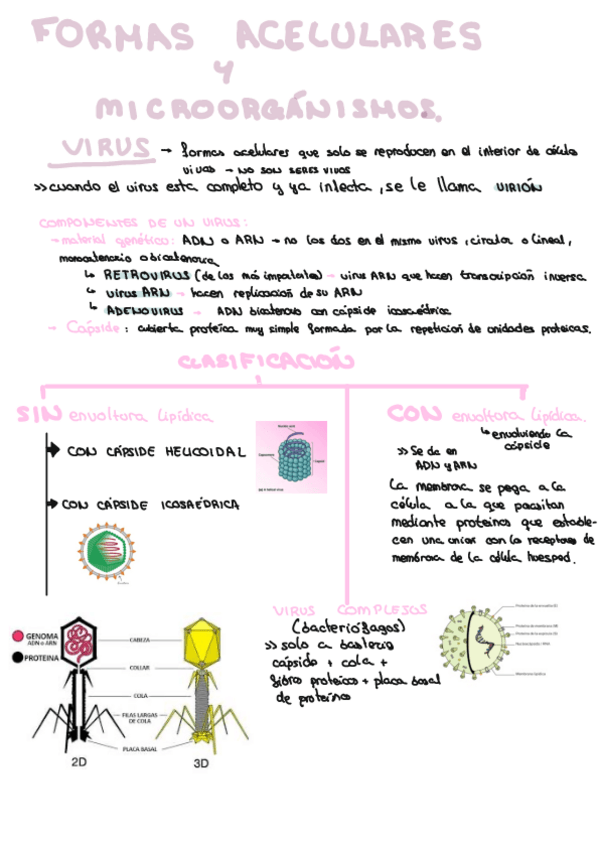 FORMAS ACELULARES
Y
MICROORGÁNISMOS.
VIRUS → formas acelulares que solo se reproducen en el interior de célula
vivas → NO SON SERES VIVOS
>> cuando el virus esta completo y ya infecta, se le llama VIRIÓN
COMPONENTES DE UN VIRUS:
→ material genético: ADN o ARN → no los dos en el mismo virus, circular o lineal,
monocatenario o bicatenario
↳ RETROVIRUS (de los más importantes) → virus ARN que hacen transcripción inversa
↳ virus ARN → hacen replicación de su ARN
↳ ADENOVIRUS → ADN bicatenario con cápside icosaédrica
→ Cápside: cubierta proteica muy simple formada por la repetición de unidades proteicas.
CLASIFICACIÓN
SIN envoltura lipídica
→ CON CÁPSIDE HELICOIDAL
→ CON CÁPSIDE ICOSAÉDRICA
CON envoltura lipídica.
↳ envolviendo la
cápside
>> Se da en
ADN y ARN
La membrana se pega a la
célula a la que parasitan
mediante proteinas que estable-
cen una union con la receptores de
membrana de la célula huesped.
VIRUS COMPLEJOS
(bacteriófagos)
>> solo a bacteria
cápside + cola +
fibra proteica + placa basal
de proteínas
GENOMA
ADN o ARN
PROTEINA
CABEZA
COLLAR
COLA
FILAS LARGAS
DE COLA
PLACA BASAL
2D
3D
Membrana lipídica